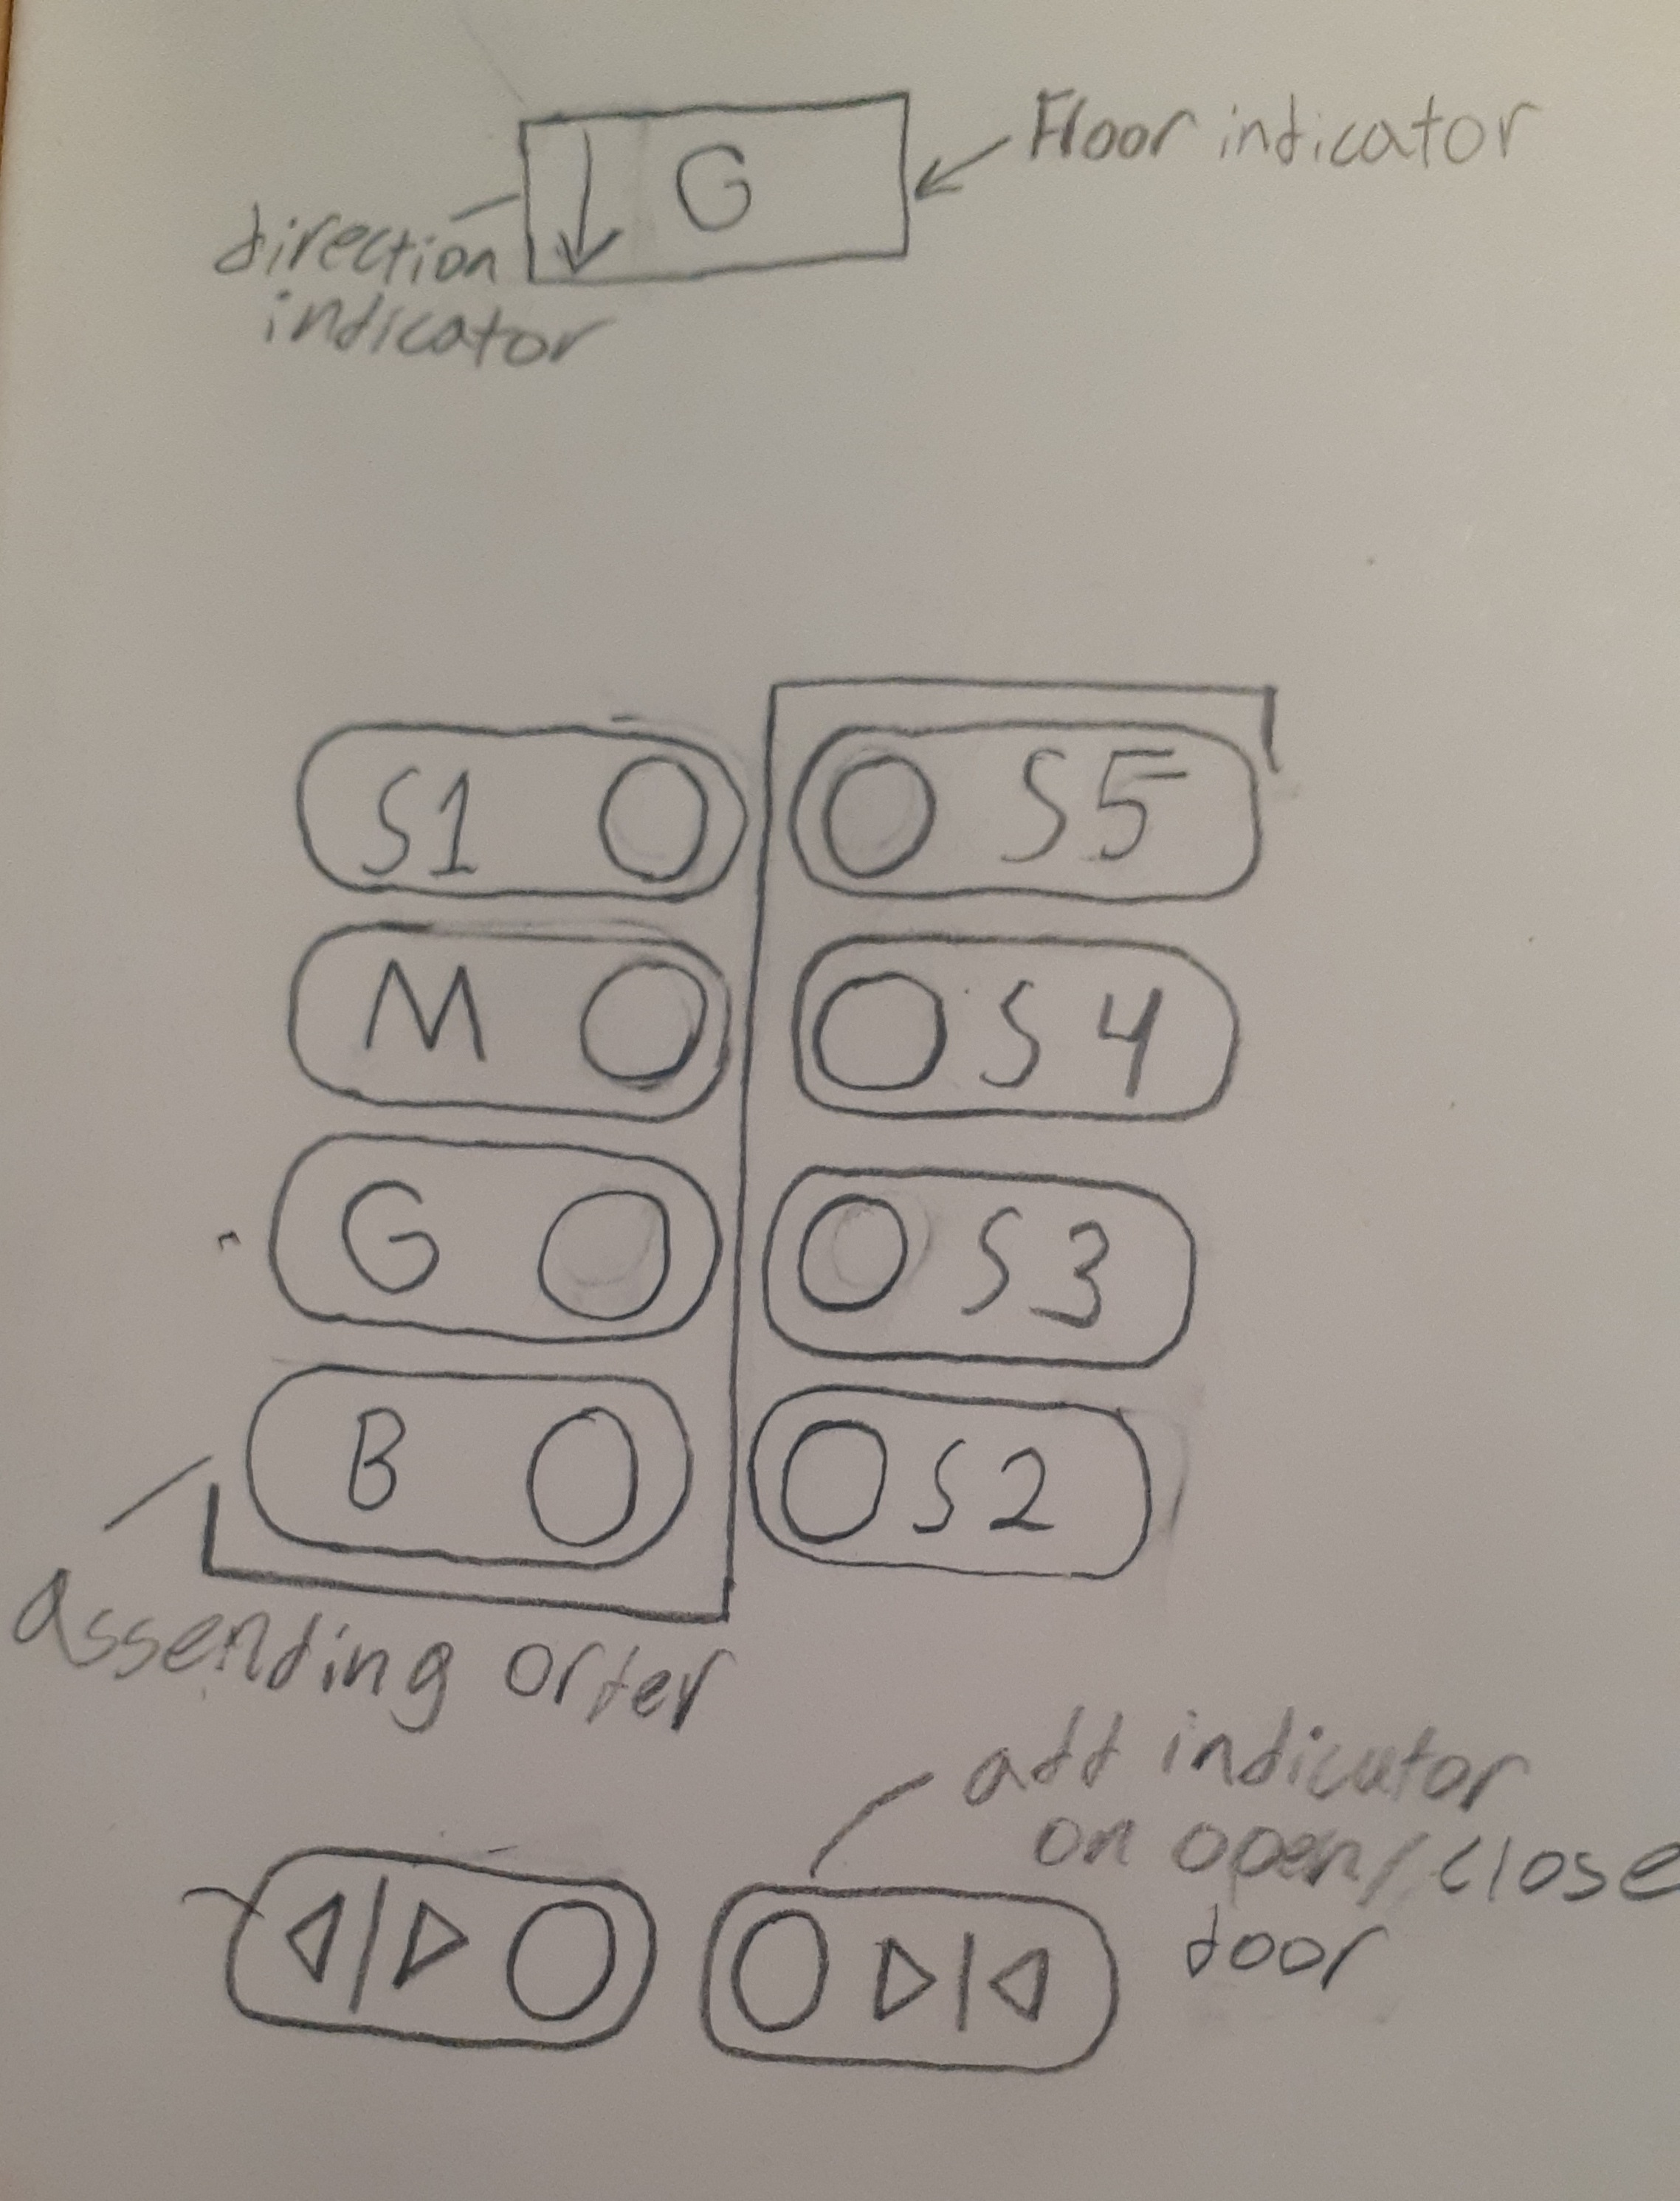 G
Floor indicator
direction
indicator
S1
S5
M
S4
G
S3
B
S2
assending order
add indicator
on open/close
door